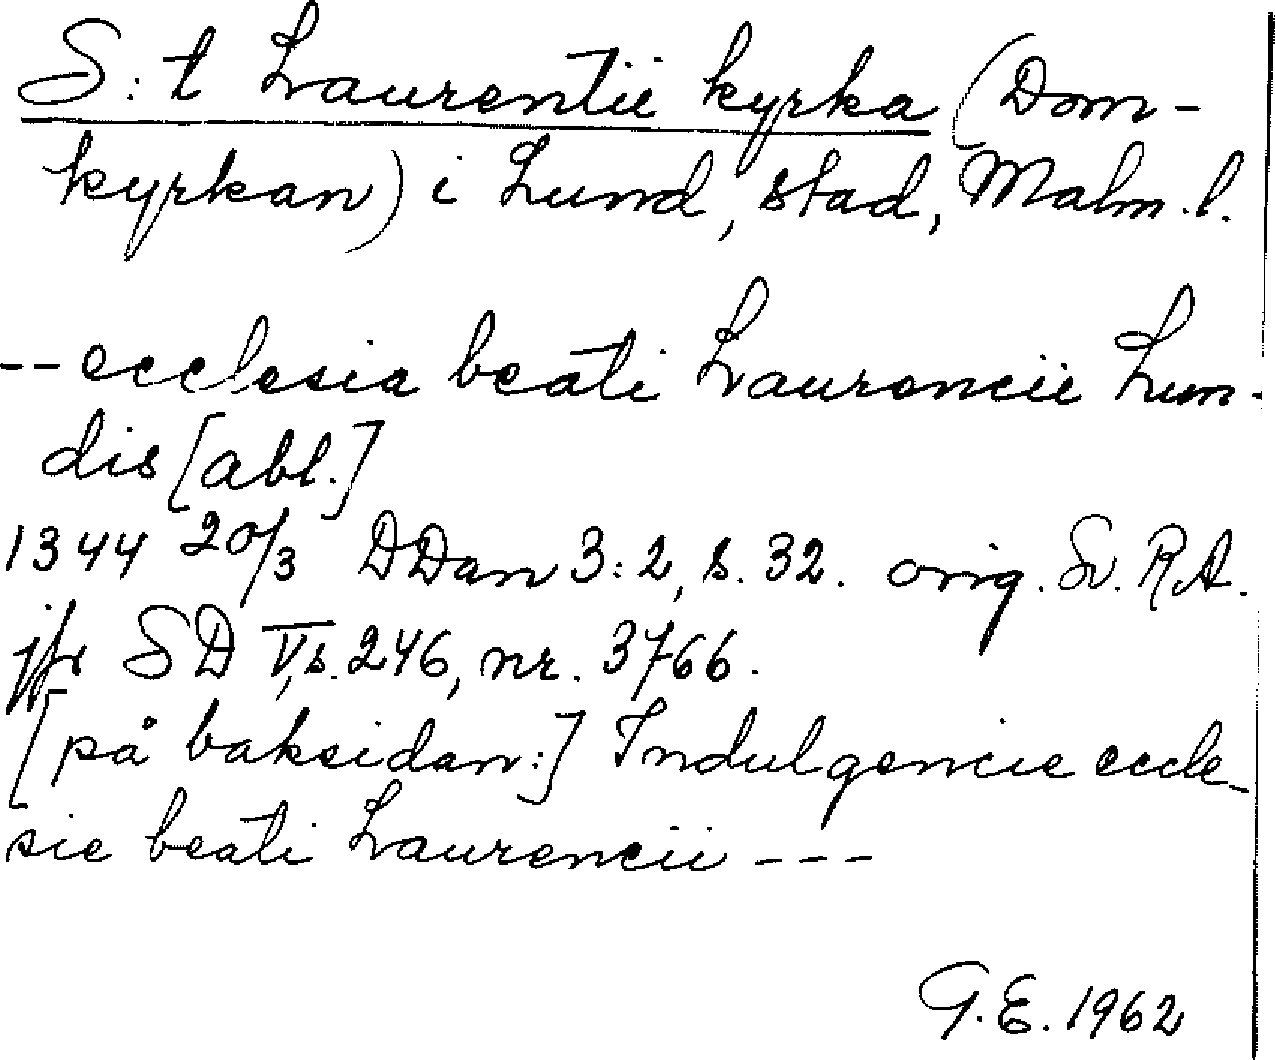 S:t Laurentii kyrka (Dom-
kyrkan) i Lund, stad, Malm.l.
-- ecclesia beati Laurencii Lun-
dis [abl.]
1344 20/3 DDan 3:2, s. 32. orig. Sv. RA.
jfr SD V, s. 246, nr. 3766.
[på baksidan:] Indulgencie eccle-
sie beati Laurencii ---
G.E. 1962